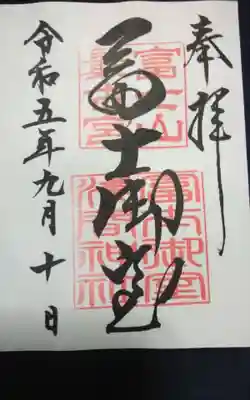 奉拝
冨士御室
令和五年九月十日
富士山
富士御室
浅間神社